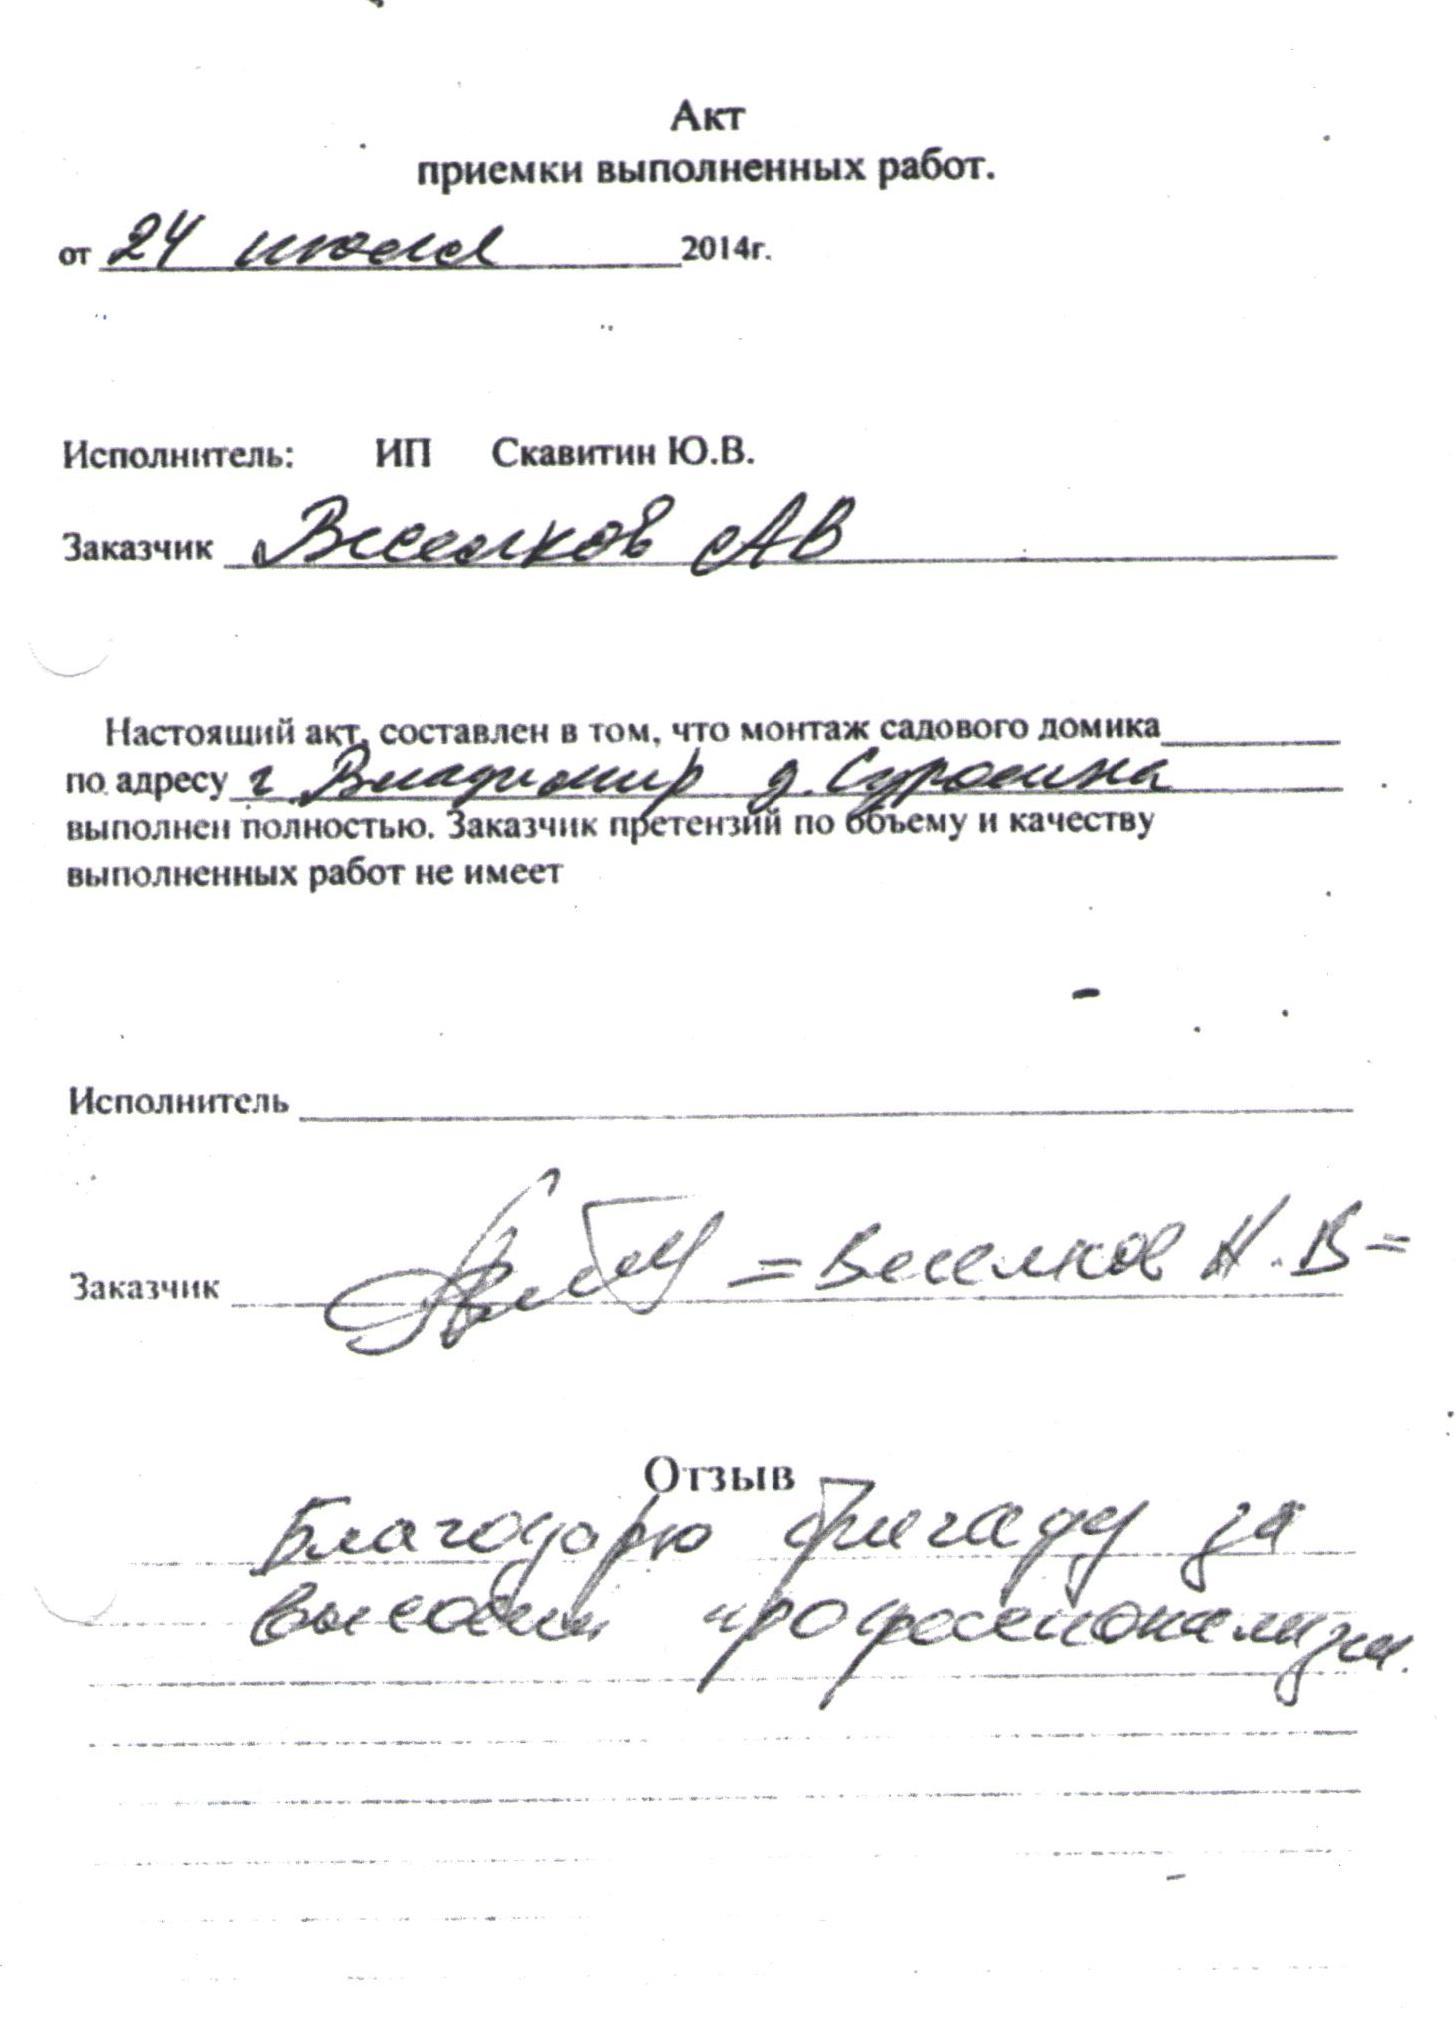 Акт
приемки выполненных работ.
от 24 июля 2014г.
Исполнитель: ИП Скавитин Ю.В.
Заказчик Веселков АВ
Настоящий акт, составлен в том, что монтаж садового домика
по адресу г Владимир д.
выполнен полностью. Заказчик претензий по объему и качеству
выполненных работ не имеет
Исполнитель
Заказчик =Веселков Н.В=
Отзыв
Благодарю бригаду за
высокий профессионализм.